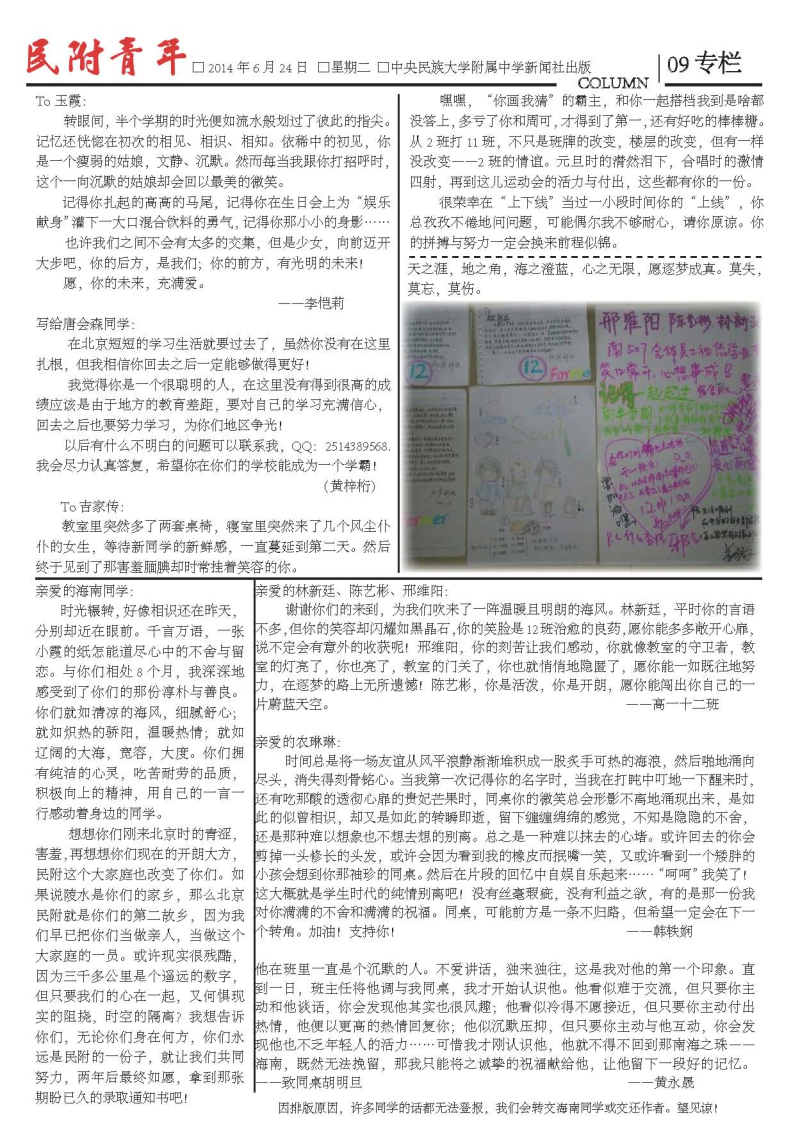 民附青年
□2014年6月24日 □星期二 □中央民族大学附属中学新闻社出版
COLUMN
09 专栏
To 玉霞：
转眼间，半个学期的时光便如流水般划过了彼此的指尖。
记忆还恍惚在初次的相见、相识、相知。依稀中的初见，你
是一个瘦弱的姑娘，文静、沉默。然而每当我跟你打招呼时，
这个一向沉默的姑娘却会回以最美的微笑。
记得你扎起的高高的马尾，记得你在生日会上为“娱乐
献身”灌下一大口混合饮料的勇气，记得你那小小的身影……
也许我们之间不会有太多的交集，但是少女，向前迈开
大步吧，你的后方，是我们；你的前方，有光明的未来！
愿，你的未来，充满爱。
——李恺莉
写给唐会森同学：
在北京短短的学习生活就要过去了，虽然你没有在这里
扎根，但我相信你回去之后一定能够做得更好！
我觉得你是一个很聪明的人，在这里没有得到很高的成
绩应该是由于地方的教育差距，要对自己的学习充满信心，
回去之后也要努力学习，为你们地区争光！
以后有什么不明白的问题可以联系我，QQ：2514389568.
我会尽力认真答复，希望你在你们的学校能成为一个学霸！
（黄梓桁）
To 吉家传：
教室里突然多了两套桌椅，寝室里突然来了几个风尘仆
仆的女生，等待新同学的新鲜感，一直蔓延到第二天。然后
终于见到了那害羞腼腆却时常挂着笑容的你。
嘿嘿，“你画我猜”的霸主，和你一起搭档我到是啥都
没答上，多亏了你和周可，才得到了第一，还有好吃的棒棒糖。
从2班打11班，不只是班牌的改变，楼层的改变，但有一样
没改变——2班的情谊。元旦时的潸然泪下，合唱时的激情
四射，再到这儿运动会的活力与付出，这些都有你的一份。
很荣幸在“上下线”当过一小段时间你的“上线”，你
总孜孜不倦地问问题，可能偶尔我不够耐心，请你原谅。你
的拼搏与努力一定会换来前程似锦。
天之涯，地之角，海之澄蓝，心之无限，愿逐梦成真。莫失，
莫忘，莫伤。
12
12
Forever
South
邢维阳 陈艺彬 林新廷
亲爱的海南同学：
时光辗转，好像相识还在昨天，
分别却近在眼前。千言万语，一张
小霞的纸怎能道尽心中的不舍与留
恋。与你们相处8个月，我深深地
感受到了你们的那份淳朴与善良。
你们就如清凉的海风，细腻舒心；
就如炽热的骄阳，温暖热情；就如
辽阔的大海，宽容，大度。你们拥
有纯洁的心灵，吃苦耐劳的品质，
积极向上的精神，用自己的一言一
行感动着身边的同学。
想想你们刚来北京时的青涩，
害羞，再想想你们现在的开朗大方，
民附这个大家庭也改变了你们。如
果说陵水是你们的家乡，那么北京
民附就是你们的第二故乡，因为我
们早已把你们当做亲人，当做这个
大家庭的一员。或许现实很残酷，
因为三千多公里是个遥远的数字，
但只要我们的心在一起，又何惧现
实的阻挠，时空的隔离？我想告诉
你们，无论你们身在何方，你们永
远是民附的一份子，就让我们共同
努力，两年后最终如愿，拿到那张
期盼已久的录取通知书吧！
亲爱的林新廷、陈艺彬、邢维阳：
谢谢你们的来到，为我们吹来了一阵温暖且明朗的海风。林新廷，平时你的言语
不多，但你的笑容却闪耀如黑晶石，你的笑脸是12班治愈的良药，愿你能多多敞开心扉，
说不定会有意外的收获呢！邢维阳，你的刻苦让我们感动，你就像教室的守卫者，教
室的灯亮了，你也亮了，教室的门关了，你也就悄悄地隐匿了，愿你能一如既往地努
力，在逐梦的路上无所遗憾！陈艺彬，你是活泼，你是开朗，愿你能闯出你自己的一
片蔚蓝天空。 ——高一十二班
亲爱的农琳琳：
时间总是将一场友谊从风平浪静渐渐堆积成一股炙手可热的海浪，然后啪地涌向
尽头，消失得刻骨铭心。当我第一次记得你的名字时，当我在打盹中叮地一下醒来时，
还有吃那酸的透彻心扉的贵妃芒果时，同桌你的微笑总会形影不离地涌现出来，是如
此的似曾相识，却又是如此的转瞬即逝，留下缠缠绵绵的感觉，不知是隐隐的不舍，
还是那种难以想象也不想去想的别离。总之是一种难以抹去的心堵。或许回去的你会
剪掉一头修长的头发，或许会因为看到我的橡皮而抿嘴一笑，又或许看到一个矮胖的
小孩会想到你那袖珍的同桌。然后在片段的回忆中自娱自乐起来……“呵呵”我笑了！
这大概就是学生时代的纯情别离吧！没有丝毫瑕疵，没有利益之欲，有的是那一份我
对你满满的不舍和满满的祝福。同桌，可能前方是一条不归路，但希望一定会在下一
个转角。加油！支持你！ ——韩轶娴
他在班里一直是个沉默的人。不爱讲话，独来独往，这是我对他的第一个印象。直
到一日，班主任将他调与我同桌，我才开始认识他。他看似难于交流，但只要你主
动和他谈话，你会发现他其实也很风趣；他看似冷得不愿接近，但只要你主动付出
热情，他便以更高的热情回复你；他似沉默压抑，但只要你主动与他互动，你会发
现他也不乏年轻人的活力……可惜我才刚认识他，他就不得不回到那南海之珠——
海南，既然无法挽留，那我只能将之诚挚的祝福献给他，让他留下一段好的记忆。
——致同桌胡明旦 ——黄永晟
因排版原因，许多同学的话都无法登报，我们会转交海南同学或交还作者。望见谅！